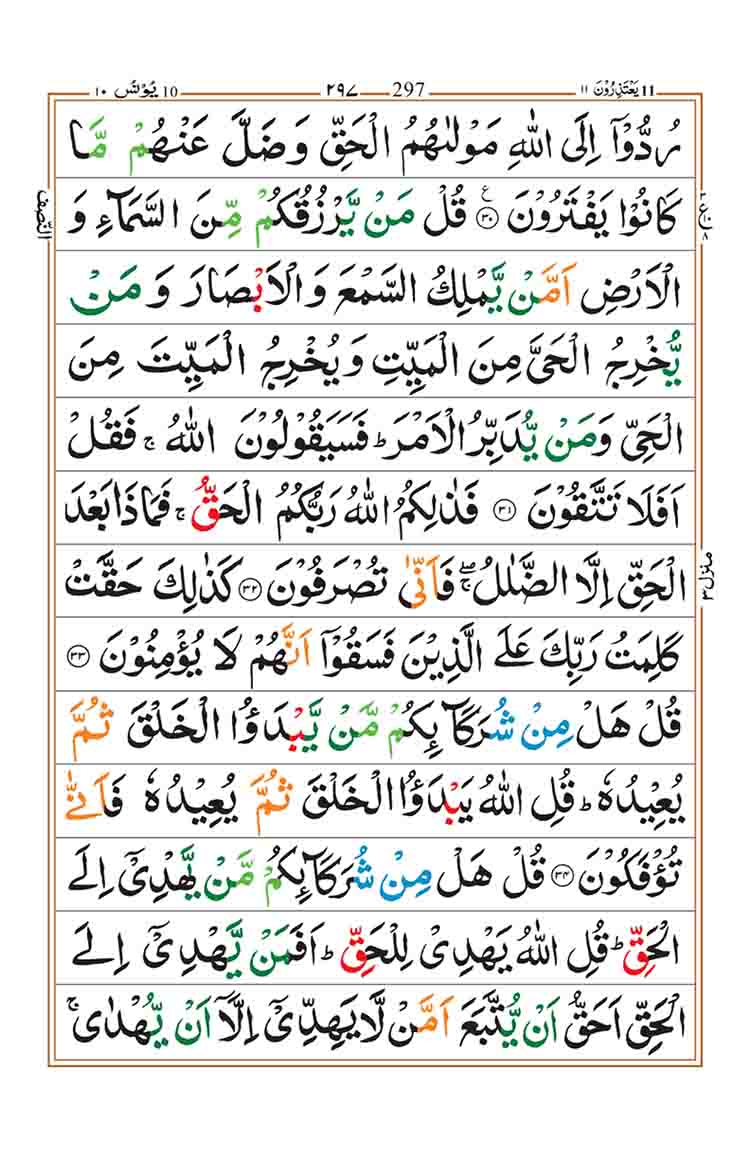 11 یَعْتَذِرُوْنَ ١١ 297 ٢٩٧ 10 یُوْنُس ١٠
رُدُّوْۤا اِلَى اللّٰهِ مَوْلٰىهُمُ الْحَقِّ وَضَلَّ عَنْهُمْ مَّا
كَانُوْا یَفْتَرُوْنَ ۝٣٠ ع قُلْ مَنْ یَّرْزُقُكُمْ مِّنَ السَّمَآءِ وَ
النّصف
الْاَرْضِ اَمَّنْ یَّمْلِكُ السَّمْعَ وَالْاَبْصَارَ وَ مَنْ
یُّخْرِجُ الْحَیَّ مِنَ الْمَیِّتِ وَیُخْرِجُ الْمَیِّتَ مِنَ
الْحَیِّ وَمَنْ یُّدَبِّرُ الْاَمْرَ ؕ فَسَیَقُوْلُوْنَ اللّٰهُ ۚ فَقُلْ
اَفَلَا تَتَّقُوْنَ ۝٣١ فَذٰلِكُمُ اللّٰهُ رَبُّكُمُ الْحَقُّ ۚ فَمَاذَا بَعْدَ
الْحَقِّ اِلَّا الضَّلٰلُ ۖۚ فَاَنّٰى تُصْرَفُوْنَ ۝٣٢ كَذٰلِكَ حَقَّتْ
منزل ٣
كَلِمَتُ رَبِّكَ عَلَى الَّذِیْنَ فَسَقُوْۤا اَنَّهُمْ لَا یُؤْمِنُوْنَ ۝٣٣
قُلْ هَلْ مِنْ شُرَكَآئِكُمْ مَّنْ یَّبْدَؤُا الْخَلْقَ ثُمَّ
یُعِیْدُهٗ ؕ قُلِ اللّٰهُ یَبْدَؤُا الْخَلْقَ ثُمَّ یُعِیْدُهٗ فَاَنّٰى
تُؤْفَكُوْنَ ۝٣٤ قُلْ هَلْ مِنْ شُرَكَآئِكُمْ مَّنْ یَّهْدِیْۤ اِلَى
الْحَقِّ ؕ قُلِ اللّٰهُ یَهْدِیْ لِلْحَقِّ ؕ اَفَمَنْ یَّهْدِیْۤ اِلَى
الْحَقِّ اَحَقُّ اَنْ یُّتَّبَعَ اَمَّنْ لَّا یَهِدِّیْۤ اِلَّاۤ اَنْ یُّهْدٰى ۚ